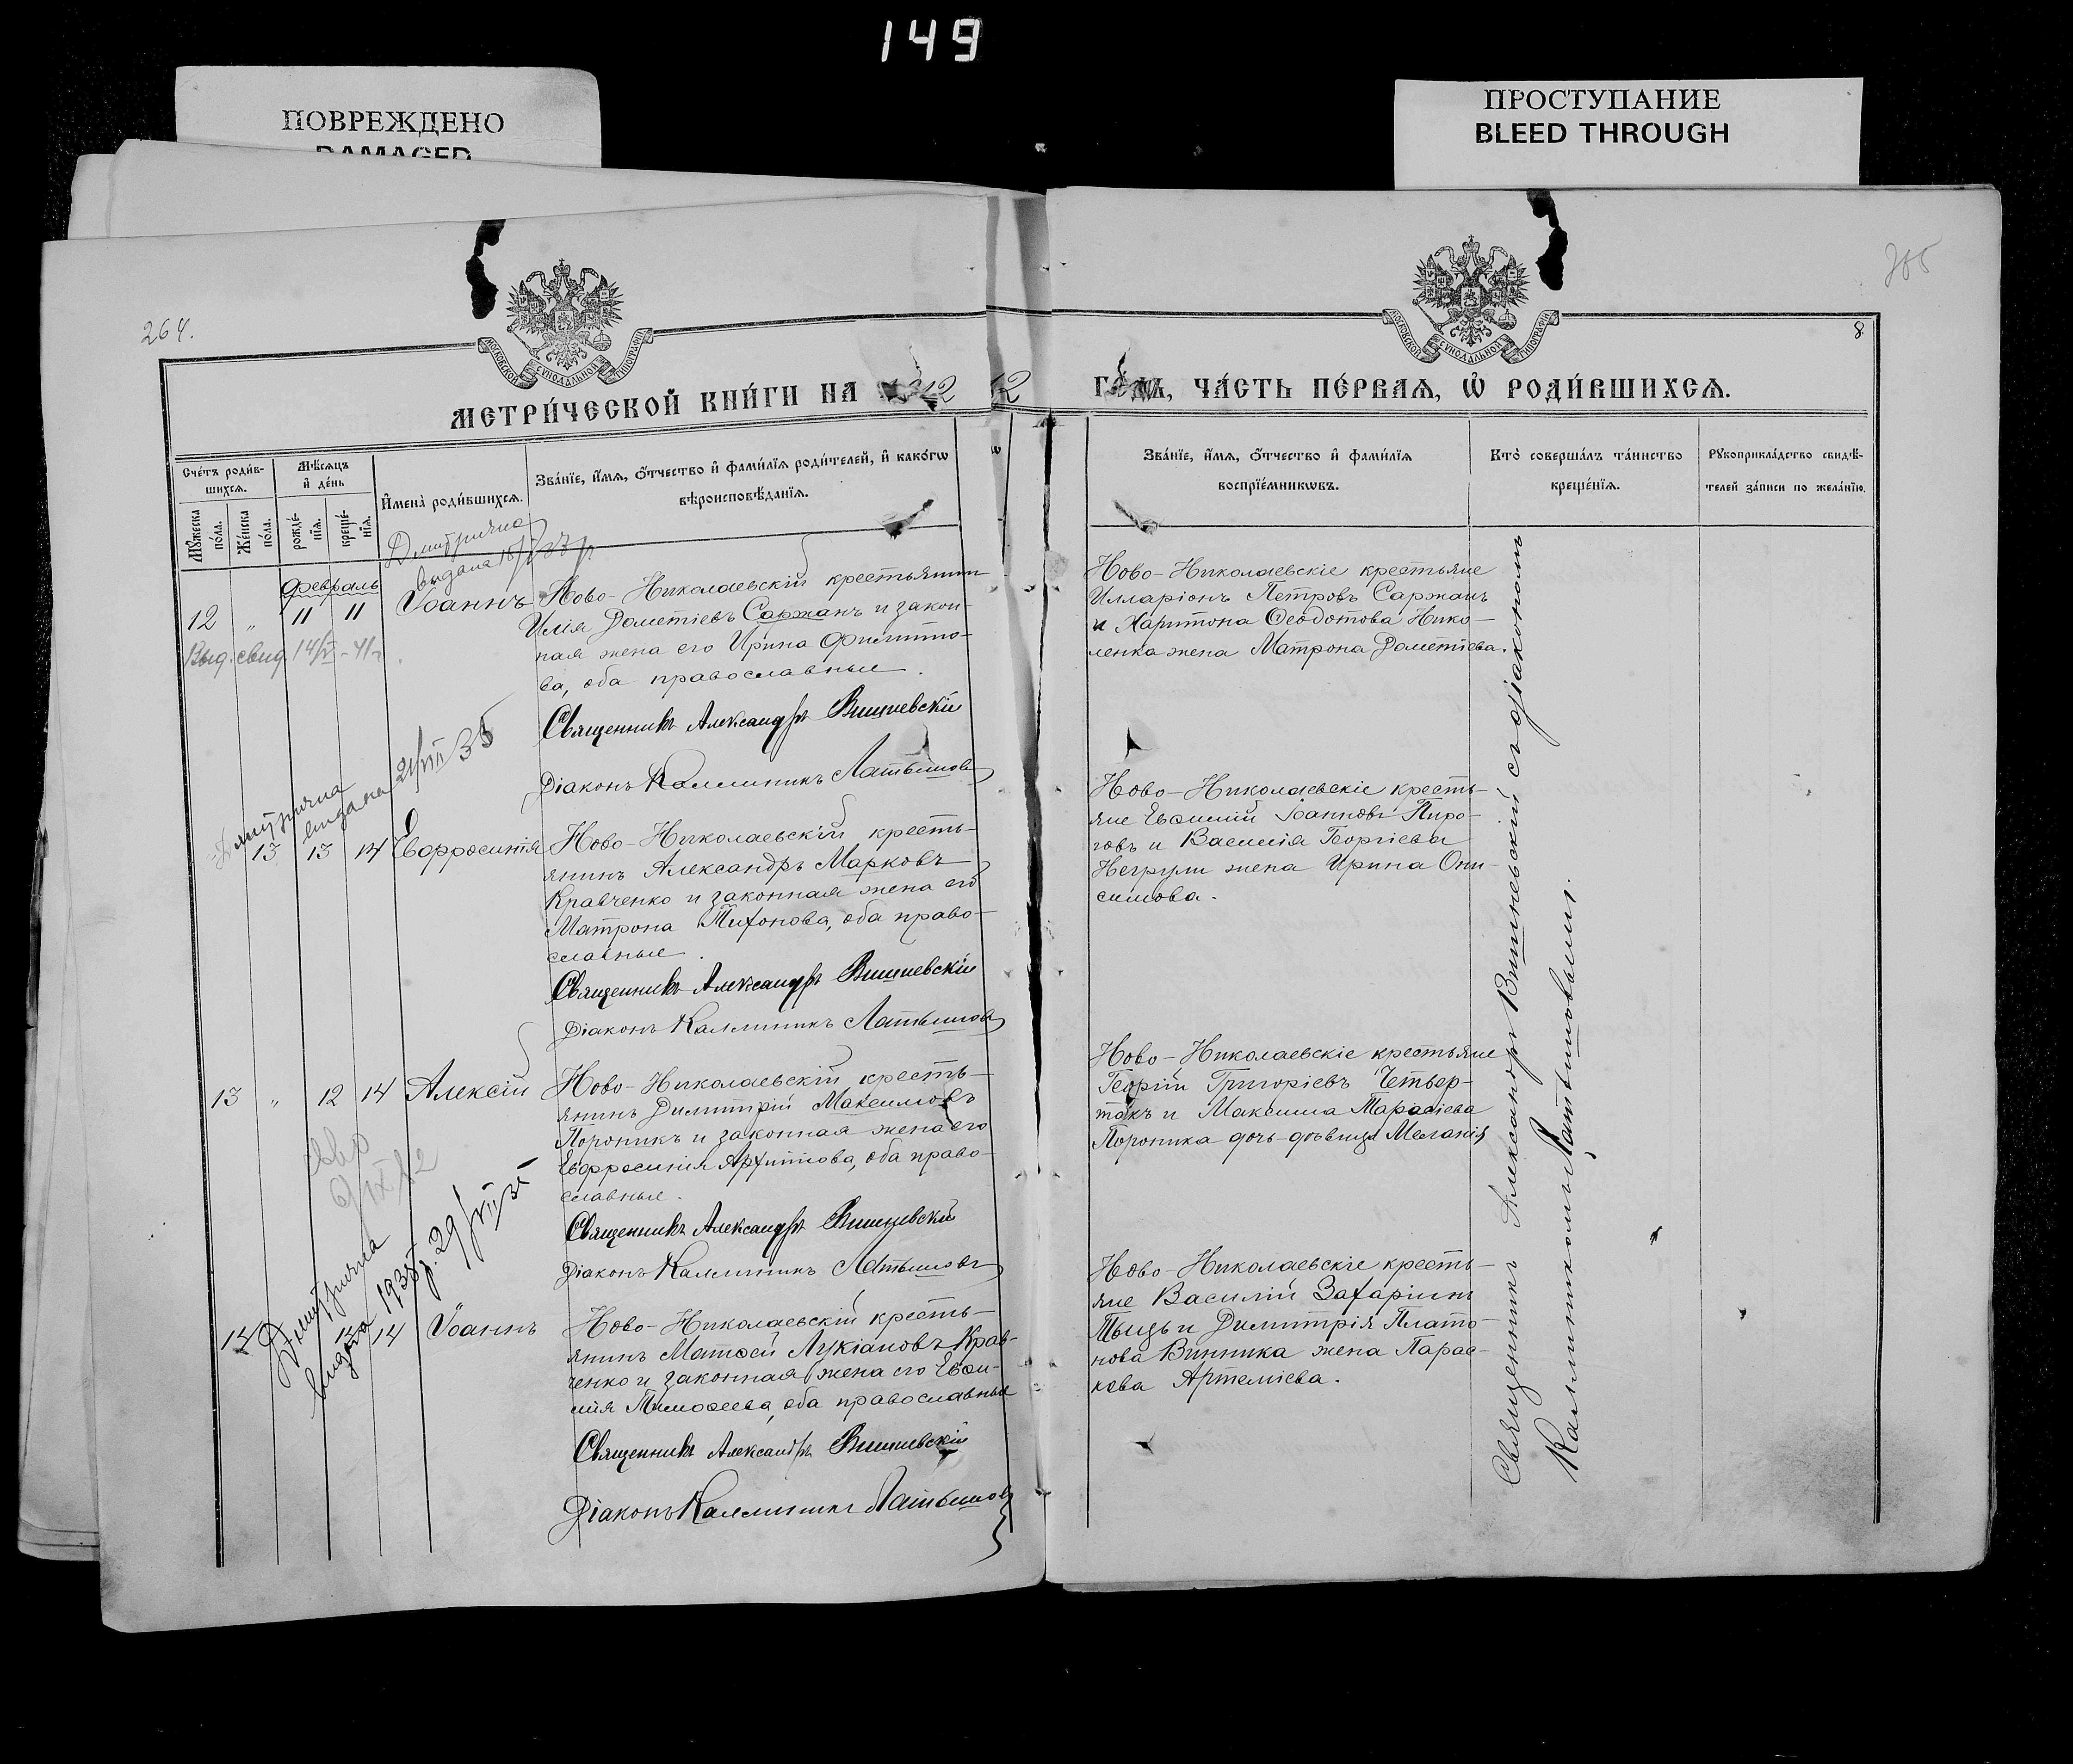 149
ПОВРЕЖДЕНО
DAMAGED
ПРОСТУПАНИЕ
BLEED THROUGH
264.
8
МОСКОВСКОЙ СУНОДАЛЬНОЙ ТИПОГРАФІИ
МОСКОВСКОЙ СУНОДАЛЬНОЙ ТИПОГРАФІИ
МЕТРИ́ЧЕСКОЙ КНИ́ГИ НА 12
12 ГО́ДЪ, ЧА́СТЬ ПЕ́РВАЯ, Ѡ҆ РОДИ́ВШИХСЯ.
Сче́тъ роди́в-
шихся.
Мꙋ́жеска по́ла.
Же́нска по́ла.
Мѣ́сяцъ
и҆ де́нь
рожде́-
нїя.
креще́-
нїя.
И҆мена̀ роди́вшихся.
Зва́нїе, и҆́мя, ѻ҆́тчество и҆ фами́лїя роди́телей, и҆ како́гѡ
вѣроисповѣ́данїя.
Зва́нїе, и҆́мя, ѻ҆́тчество и҆ фами́лїя
воспрїе́мникѡвъ.
Кто̀ соверша́лъ та́инство
креще́нїя.
Рꙋкоприкла́дство свидѣ́-
телей за́писи по жела́нїю.
Дмитрична
выдана
Февраль
12 " 11 11 Іоаннъ
Выд. свид. 14/V - 41 г.
Ново-Николаевскій крестьянин
Илія Дометіевъ Саржанъ и закон-
ная жена его Ирина Филиппо-
ва, оба православные.
Священникъ Александръ Вишневскій
Діаконъ Каллиникъ Латышовъ
Ново-Николаевскіе крестьяне
Илларіонъ Петровъ Саржанъ
и Харитона Ѳеодотова Нико-
ленка жена Матрона Дометіева.
выдана 21/VIII 35
13 13 14 Евфросинія
Ново-Николаевскій кресть-
янинъ Александръ Марковъ
Кравченко и законная жена его
Матрона Тихонова, оба право-
славные.
Священникъ Александръ Вишневскій
Діаконъ Каллиникъ Латышовъ
Ново-Николаевскіе кресть-
яне Евѳимій Іоанновъ Пиро-
говъ и Василія Георгіева
Негрули жена Ирина Они-
симова.
13 " 12 14 Алексій
Ново-Николаевскій кресть-
янинъ Димитрій Максимовъ
Пороникъ и законная жена его
Евфросинія Архипова, оба право-
славные.
Священникъ Александръ Вишневскій
Діаконъ Каллиникъ Латышовъ
Ново-Николаевскіе крестьяне
Георгій Григоріевъ Четвер-
такъ и Максима Тарасіева
Пороника дочь-дѣвица Меланія
выдана 1935 г. 29/VII
14 12 14 Іоаннъ
Ново-Николаевскій кресть-
янинъ Матѳей Лукіановъ Крав-
ченко и законная жена его Евѳи-
мія Тимоѳеева, оба православные
Священникъ Александръ Вишневскій
Діаконъ Каллиникъ Латышовъ
Ново-Николаевскіе кресть-
яне Василій Захаріинъ
Тыщъ и Димитрія Плато-
нова Винника жена Парас-
кева Артеміева.
Священникъ Александръ Вишневскій съ діакономъ
Каллиникомъ Латышовымъ.